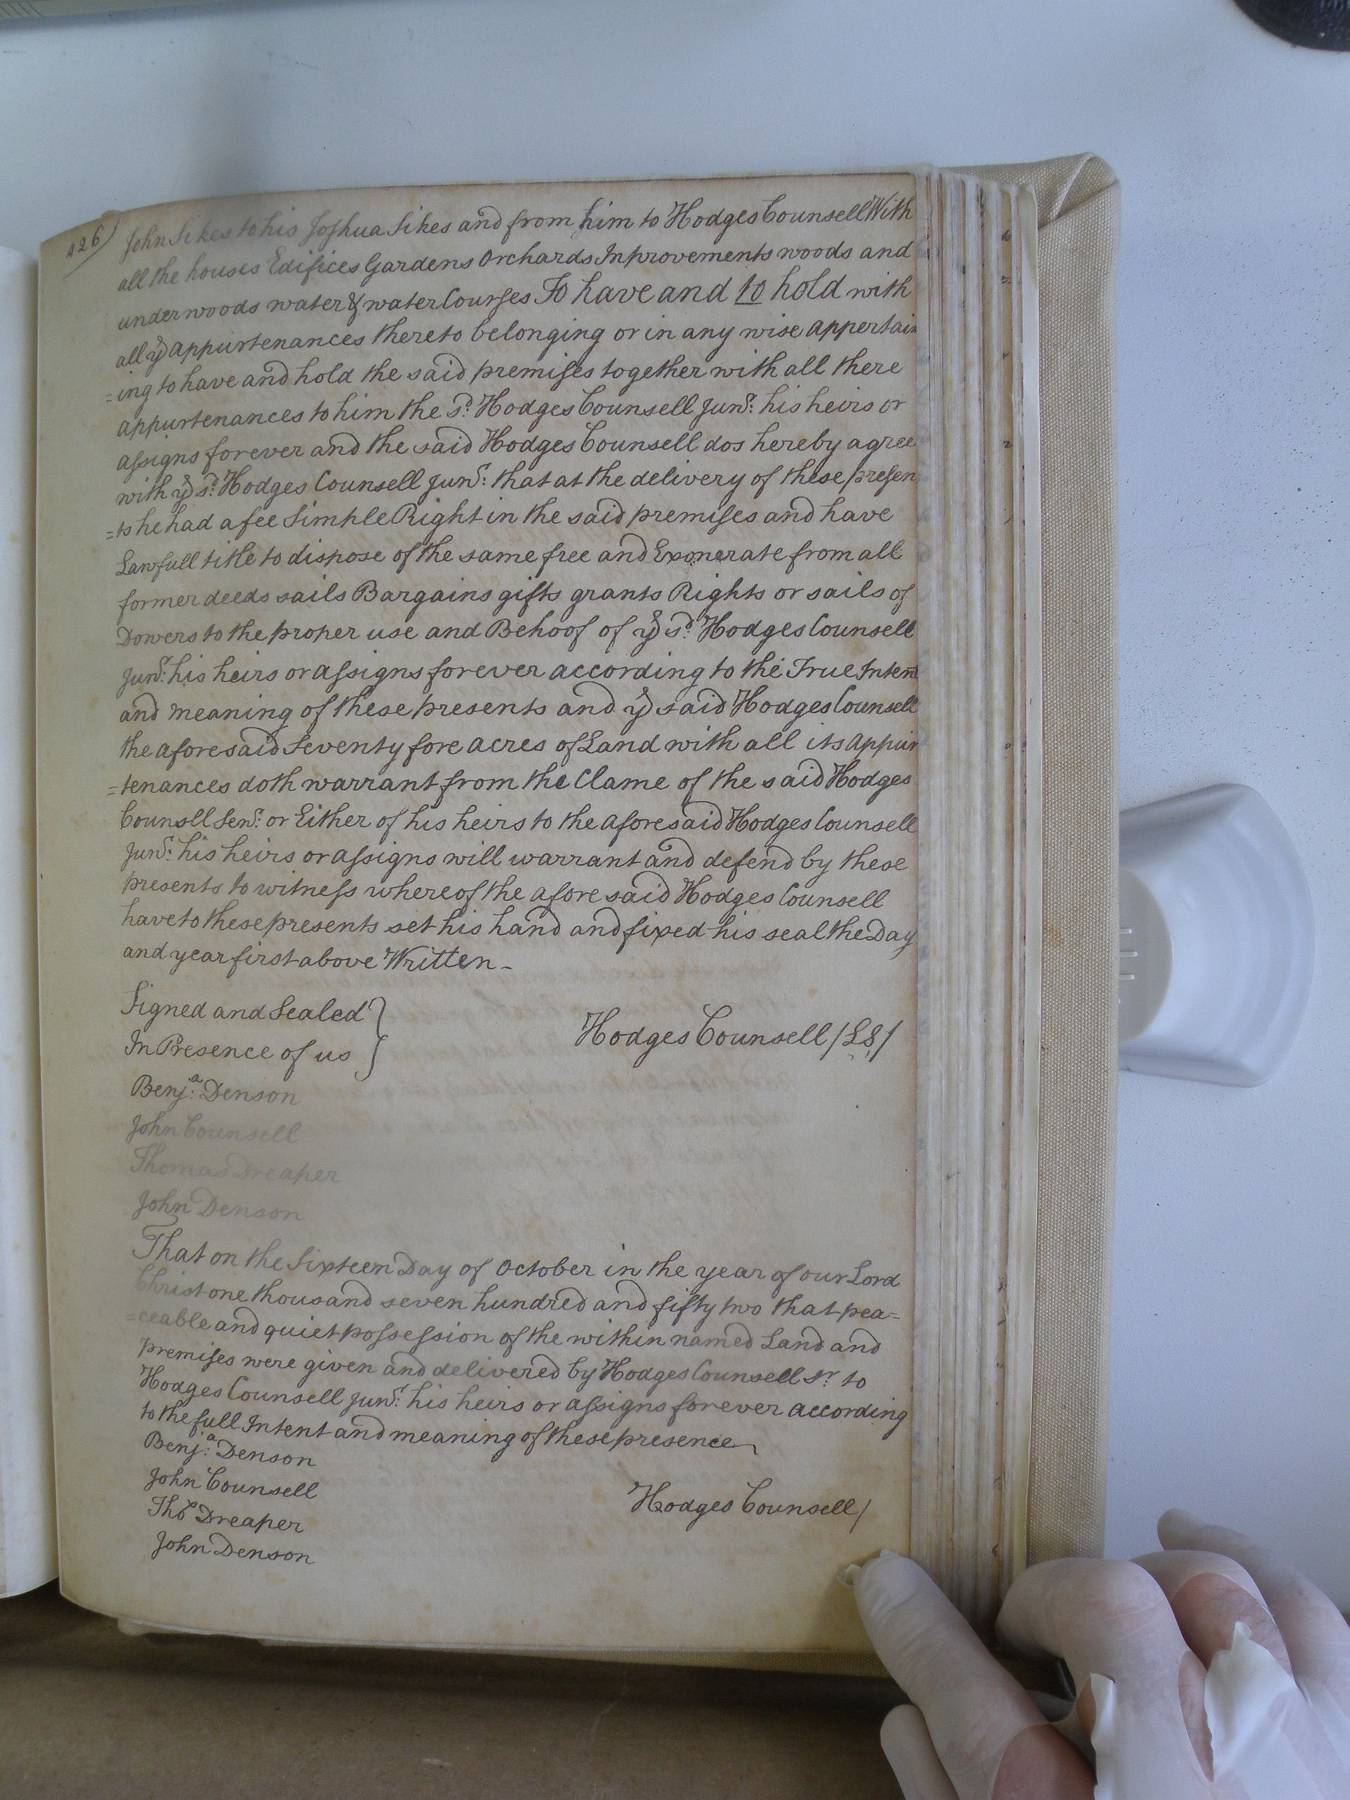 426
John Sikes to his Joshua Sikes and from him to Hodges Counsell With
all the houses Edifices Gardens Orchards Inprovements woods and
underwoods water & water Courses To have and to hold with
all ye appurtenances thereto belonging or in any wise appertain
=ing to have and hold the said premises together with all there
appurtenances to him the sd. Hodges Counsell Junr: his heirs or
assigns forever and the said Hodges Counsell dos hereby agree
with ye sd. Hodges Counsell Junr: that at the delivery of these presen
=ts he had a fee Simple Right in the said premises and have
Lawfull title to dispose of the same free and Exonerate from all
former deeds sails Bargains gifts grants Rights or sails of
Dowers to the proper use and Behoof of ye sd. Hodges Counsell
Junr: his heirs or assigns forever according to the True Intent
and meaning of these presents and ye said Hodges Counsell
the aforesaid Seventy fore acres of Land with all its appur
=tenances doth warrant from the Clame of the said Hodges
Counsll Senr: or Either of his heirs to the aforesaid Hodges Counsell
Junr: his heirs or assigns will warrant and defend by these
presents to witness whereof the afore said Hodges Counsell
have to these presents set his hand and fixed his seal the Day
and year first above Written_
Signed and Sealed }
In Presence of us }
Hodges Counsell /LS/
Benja: Denson
John Counsell
Thomas Dreaper
John Denson
That on the Sixteen Day of October in the year of our Lord
Christ one thousand seven hundred and fifty two that pea=
=ceable and quiet possession of the within named Land and
premises were given and delivered by Hodges Counsell Sr to
Hodges Counsell Junr: his heirs or assigns forever according
to the full Intent and meaning of these presence
Benja: Denson
John Counsell
Thos Dreaper
John Denson
Hodges Counsell/